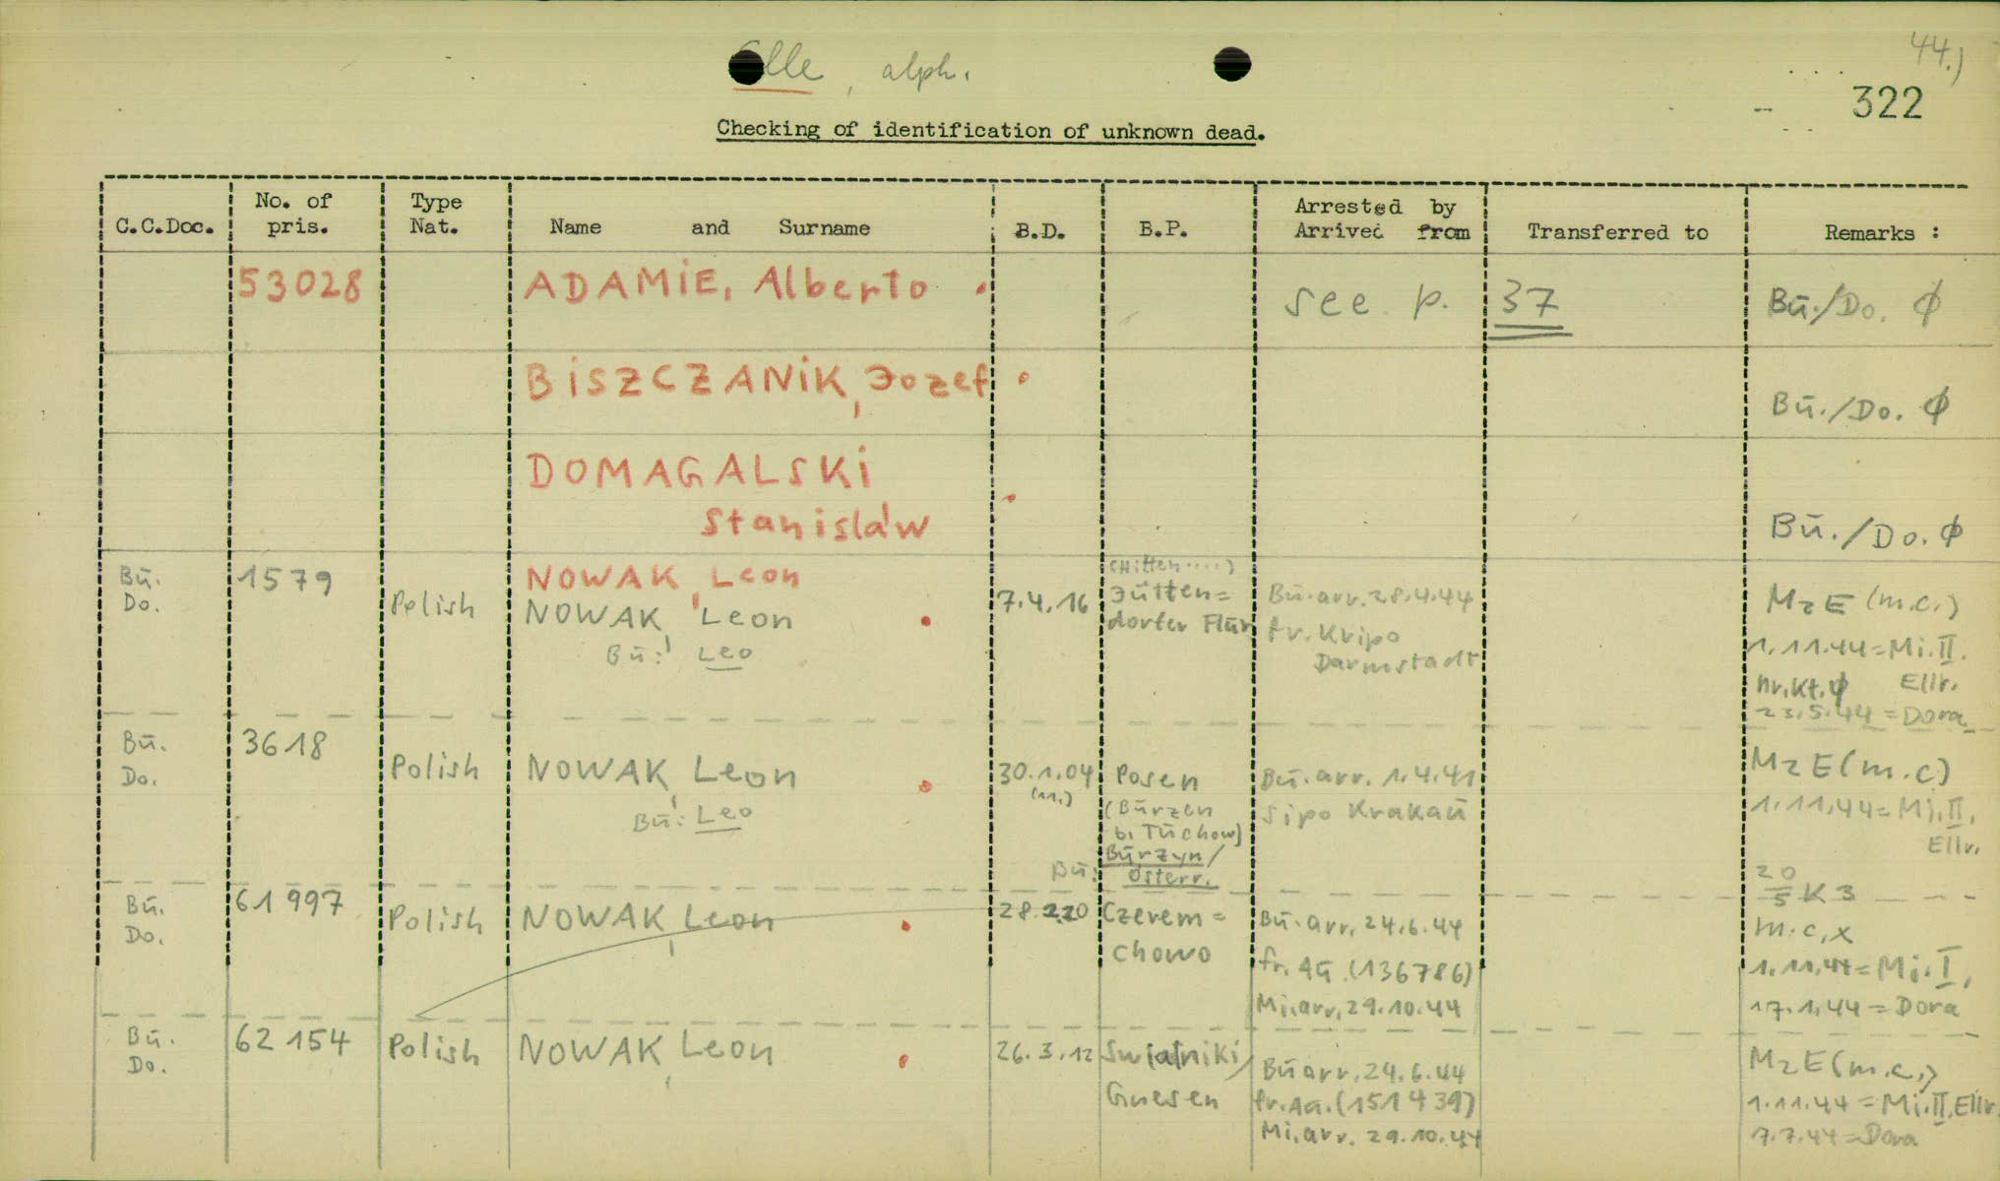 44.)
alph.
322
Checking of identification of unknown dead.
C.C.Doc.
No. of pris.
Type Nat.
Name and Surname
B.D.
B.P.
Arrested by
Arrived from
Transferred to
Remarks :
53028 ADAMIE, Alberto see p. 37 Bu./Do. ϕ
BISZCZANIK, Jozef Bu./Do. ϕ
DOMAGALSKI
Stanislaw Bu./Do. ϕ
Bu.
Do.
1579
Polish
NOWAK, Leon
NOWAK, Leon
Bu: Leo
7.4.16
(Hütten....)
Jütten=
dorfer Flur
Bu. arr. 28.4.44
fr. Kripo
Darmstadt
MzE (m.c.)
1.11.44=Mi.II.
Ellr.
nr.Kt.ϕ
23.5.44=Dora
Bu.
Do.
3618
Polish
NOWAK, Leon
Bu: Leo
30.1.04
(11.)
Posen
(Burzen
b. Tuchow)
Bu: Burzyn/
Österr.
Bu. arr. 1.4.41
Sipo Krakau
MzE (m.c)
1.11.44=Mi.II.
Ellr.
20/5 K3
Bu.
Do.
61997
Polish
NOWAK, Leon
28.2.20
Czerem=
chowo
Bu. arr. 24.6.44
fr. Au. (136786)
Mi. arr. 29.10.44
m.c,x
1.11.44=Mi.I,
17.1.44=Dora
Bu.
Do.
62154
Polish
NOWAK, Leon
26.3.12
Swiatniki/
Gnesen
Bu arr. 24.6.44
fr. Au. (151439)
Mi. arr. 29.10.44
MzE (m.c.)
1.11.44=Mi.II.Ellr
7.7.44=Dora